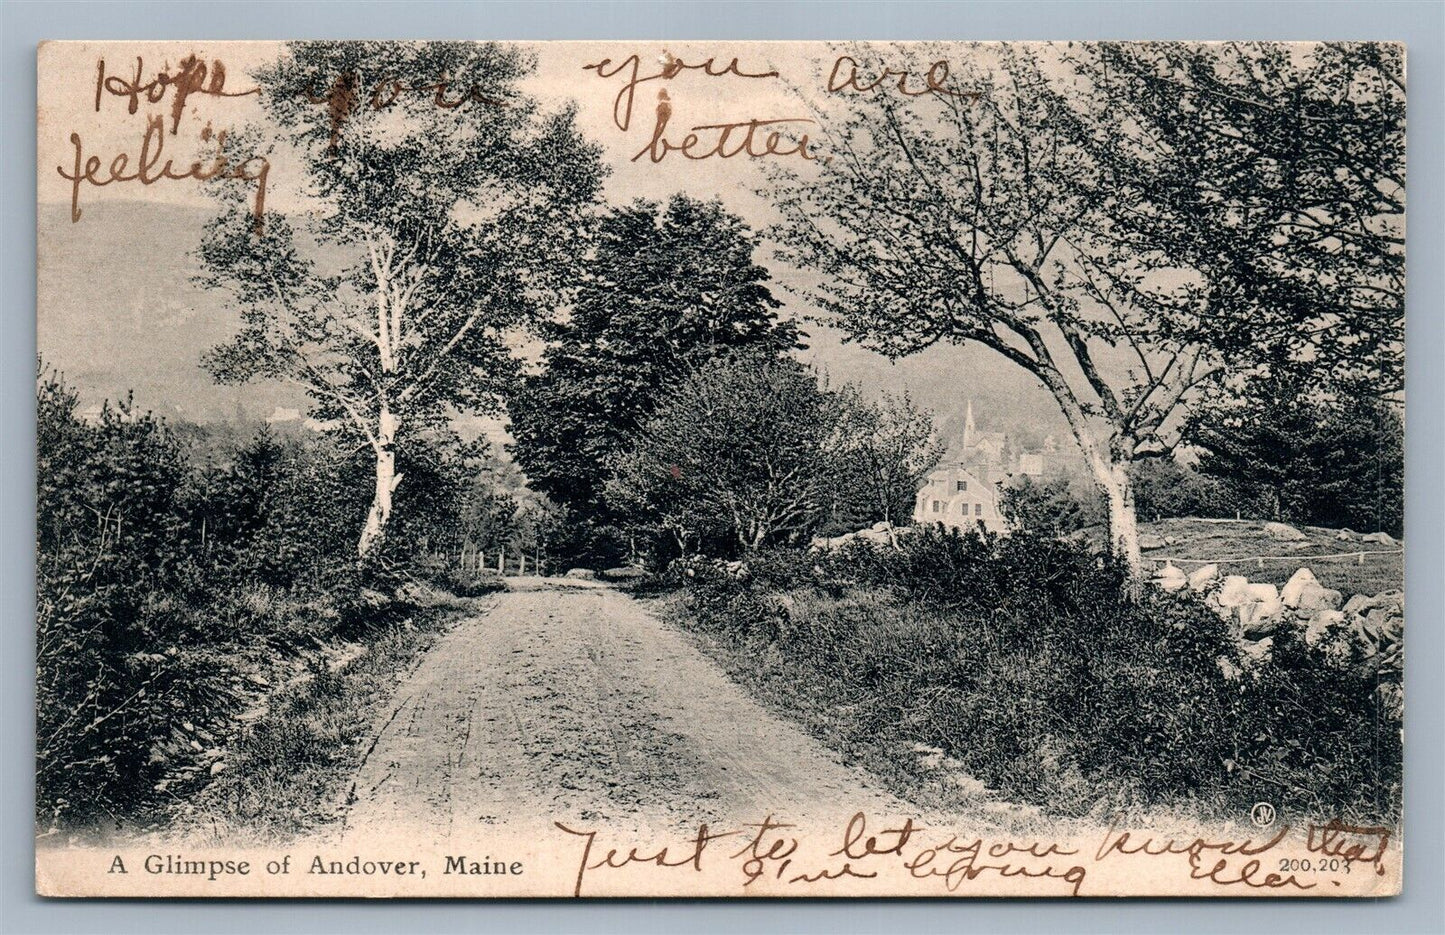 Hope you you are
feeling better
Just to let you know that
I'm living Ella.
A Glimpse of Andover, Maine
200,203
JV